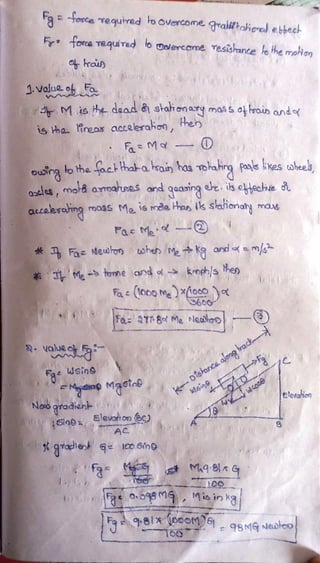 Fg = force required to overcome gravitational effect
Fr = force required to overcome resistance to the motion
of train
1. value of Fa
If M is the dead or stationary mass of train and α
is the linear acceleration, then
Fa = Mα — ①
owing to the fact that a train has rotating parts likes wheels,
axles, motor armatures and gearing etc. its effective or
accelerating mass Me is more than its stationary mass
Fa = Me.α — ②
* If Fa = Newton when Me → kg and α = m/s²
* If Me → tonne and α → kmph/s then
Fa = (1000 Me) × (1000/3600) α
Fa = 277.8α Me Newton — ③
2. value of Fg :-
Fg = W sinθ
= Mg sinθ
Now gradient
; sinθ = Elevation (BC) / AC
% gradient G = 100 sinθ
Fg = MgG/100 M×9.81×G/100
Fg = 0.098MG , M is in kg
Fg = 9.81×(1000M)G/100 = 98MG Newton
Distance along track
Fg
C
W sinθ
W cosθ
W
θ
Elevation
A
B